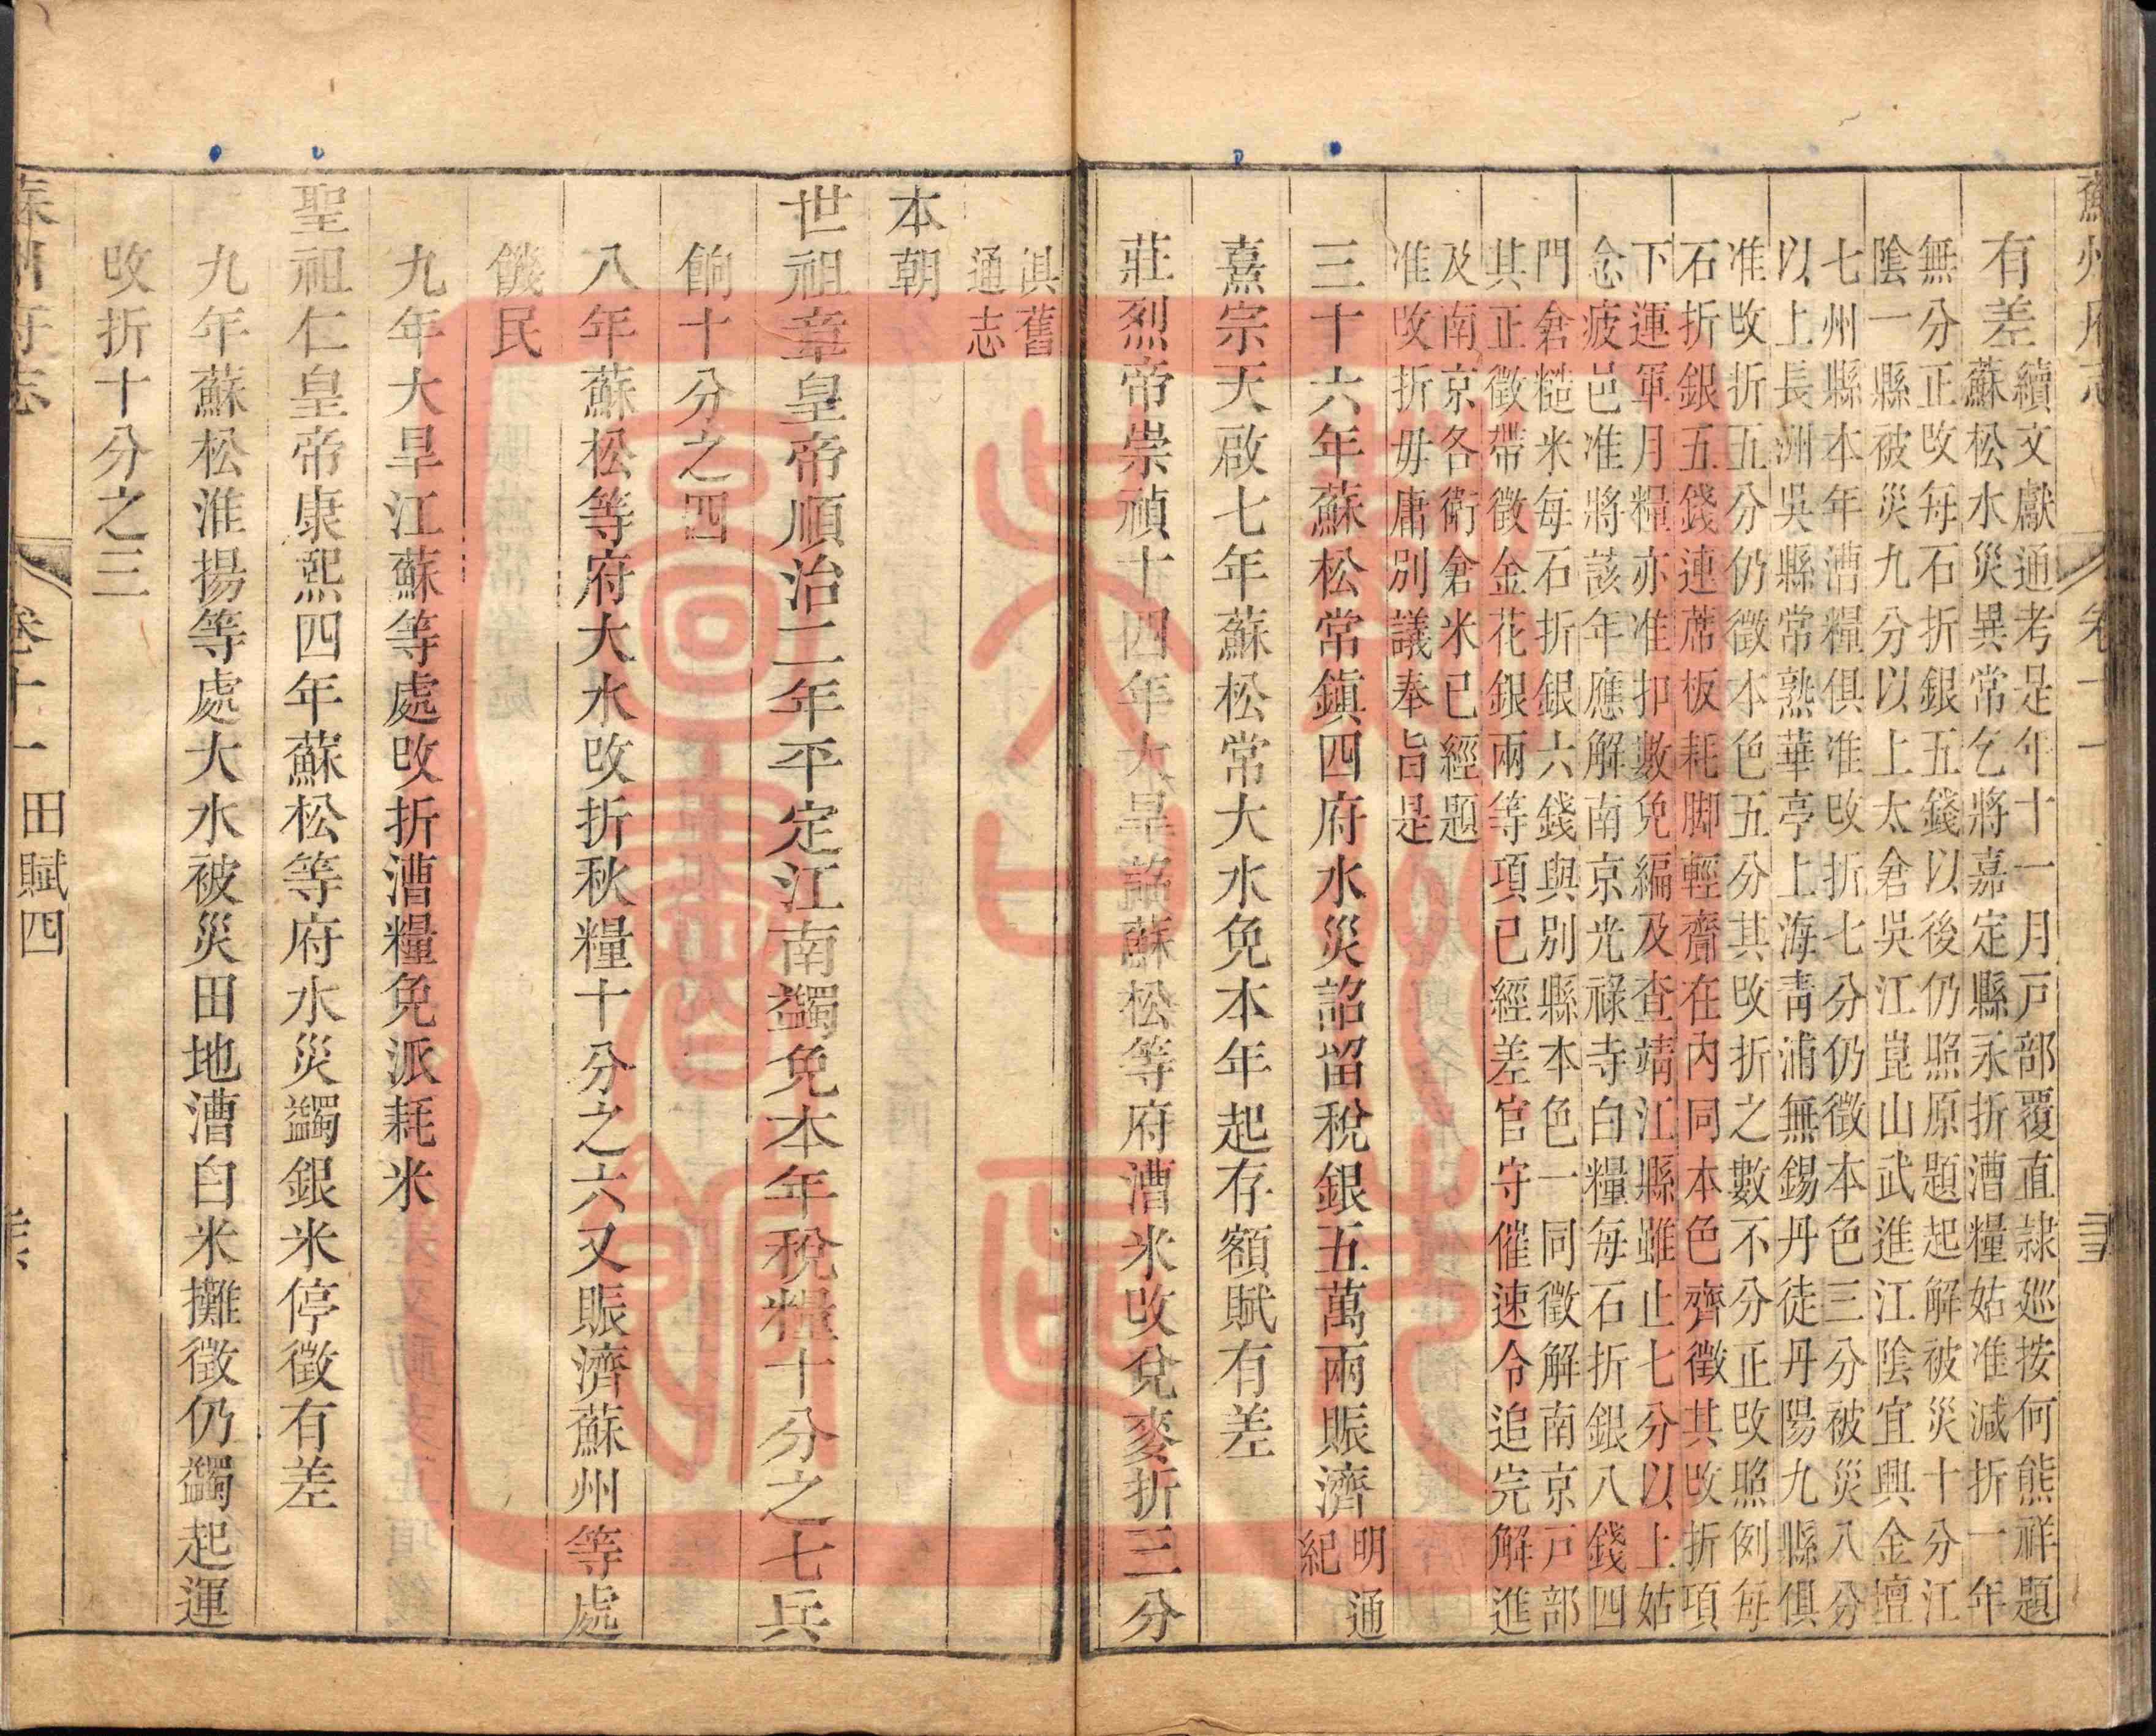 蘇州府志
卷十一
有差
續文獻通考是年十一月戸部覆直隷巡按何熊祥題
蘇松水災異常乞將嘉定縣永折漕糧姑准減折一年
無分正攺每石折銀五錢以後仍照原題起解被災十分江
陰一縣被災九分以上太倉吳江崑山武進江陰宜興金壇
七州縣本年漕糧俱准攺折七分仍徵本色三分被災八分
以上長洲吳縣常熟華亭上海青浦無錫丹徒丹陽九縣俱
准攺折五分仍徵本色五分其攺折之數不分正攺照例每
石折銀五錢連蓆板耗脚輕齎在內同本色齊徵其攺折項
下運軍月糧亦准扣數免編及查靖江縣雖止七分以上姑
念疲邑准將該年應解南京光祿寺白糧每石折銀八錢四
門倉糙米每石折銀六錢與別縣本色一同徵解南京戸部
其正徵帶徵金花銀兩等項已經差官守催速令追完解進
及南京各衛倉米已經題
准攺折毋庸別議奉旨是
三十六年蘇松常鎮四府水災詔留稅銀五萬兩賑濟
明通
紀
熹宗天啟七年蘇松常大水免本年起存額賦有差
莊烈帝崇禎十四年大旱詔蘇松等府漕米攺兌麥折三分
具舊
通志
本朝
世祖章皇帝順治二年平定江南蠲免本年稅糧十分之七兵
餉十分之四
八年蘇松等府大水攺折秋糧十分之六又賑濟蘇州等處
饑民
九年大旱江蘇等處攺折漕糧免派耗米
聖祖仁皇帝康熙四年蘇松等府水災蠲銀米停徵有差
九年蘇松淮揚等處大水被災田地漕白米攤徵仍蠲起運
攺折十分之三
蘇州府志
卷十一
田賦四